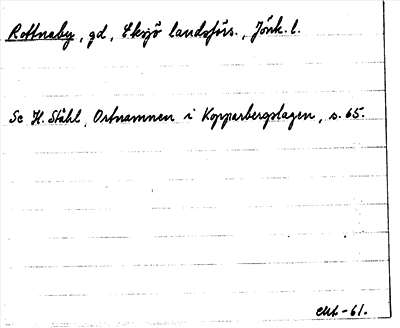 Rottnaby, gd, Eksjö landsförs., Jönk. l.
Se H. Ståhl, Ortnamnen i Kopparbergslagen, s. 65.
-61.